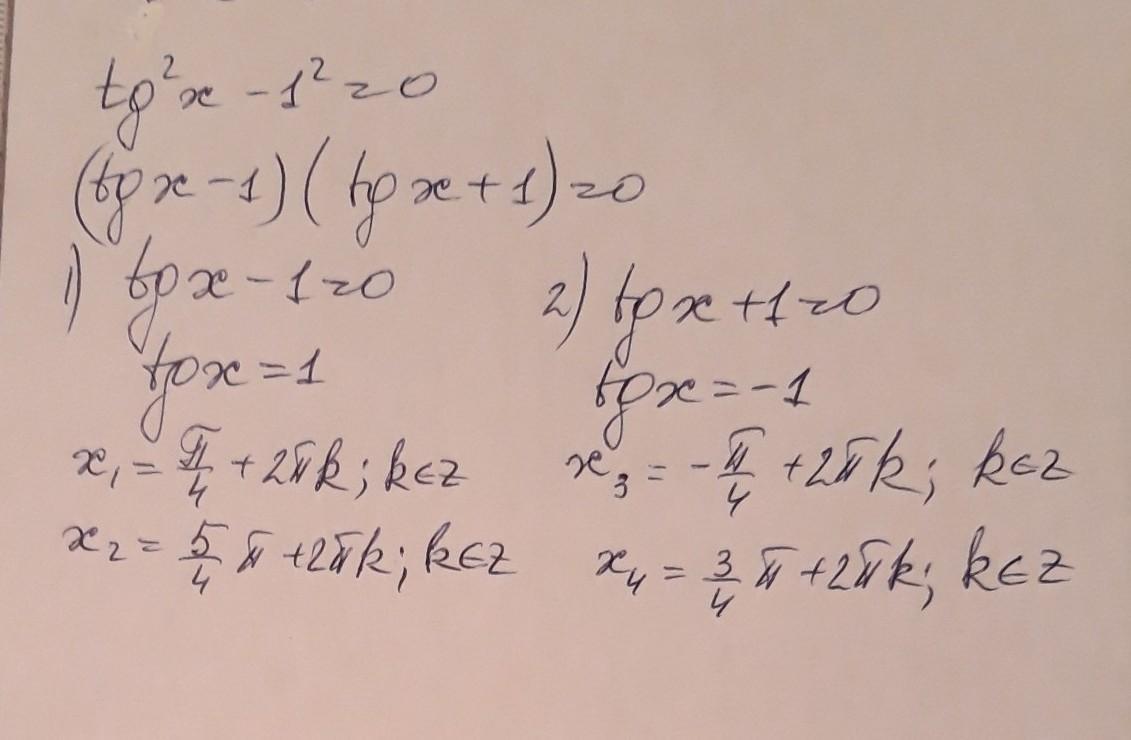 tg²x - 1² = 0
(tgx - 1)(tgx + 1) = 0
1) tgx - 1 = 0
tgx = 1
x₁ = π/4 + 2πk; k∈z
x₂ = 5/4 π + 2πk; k∈z
2) tgx + 1 = 0
tgx = -1
x₃ = -π/4 + 2πk; k∈z
x₄ = 3/4 π + 2πk; k∈z